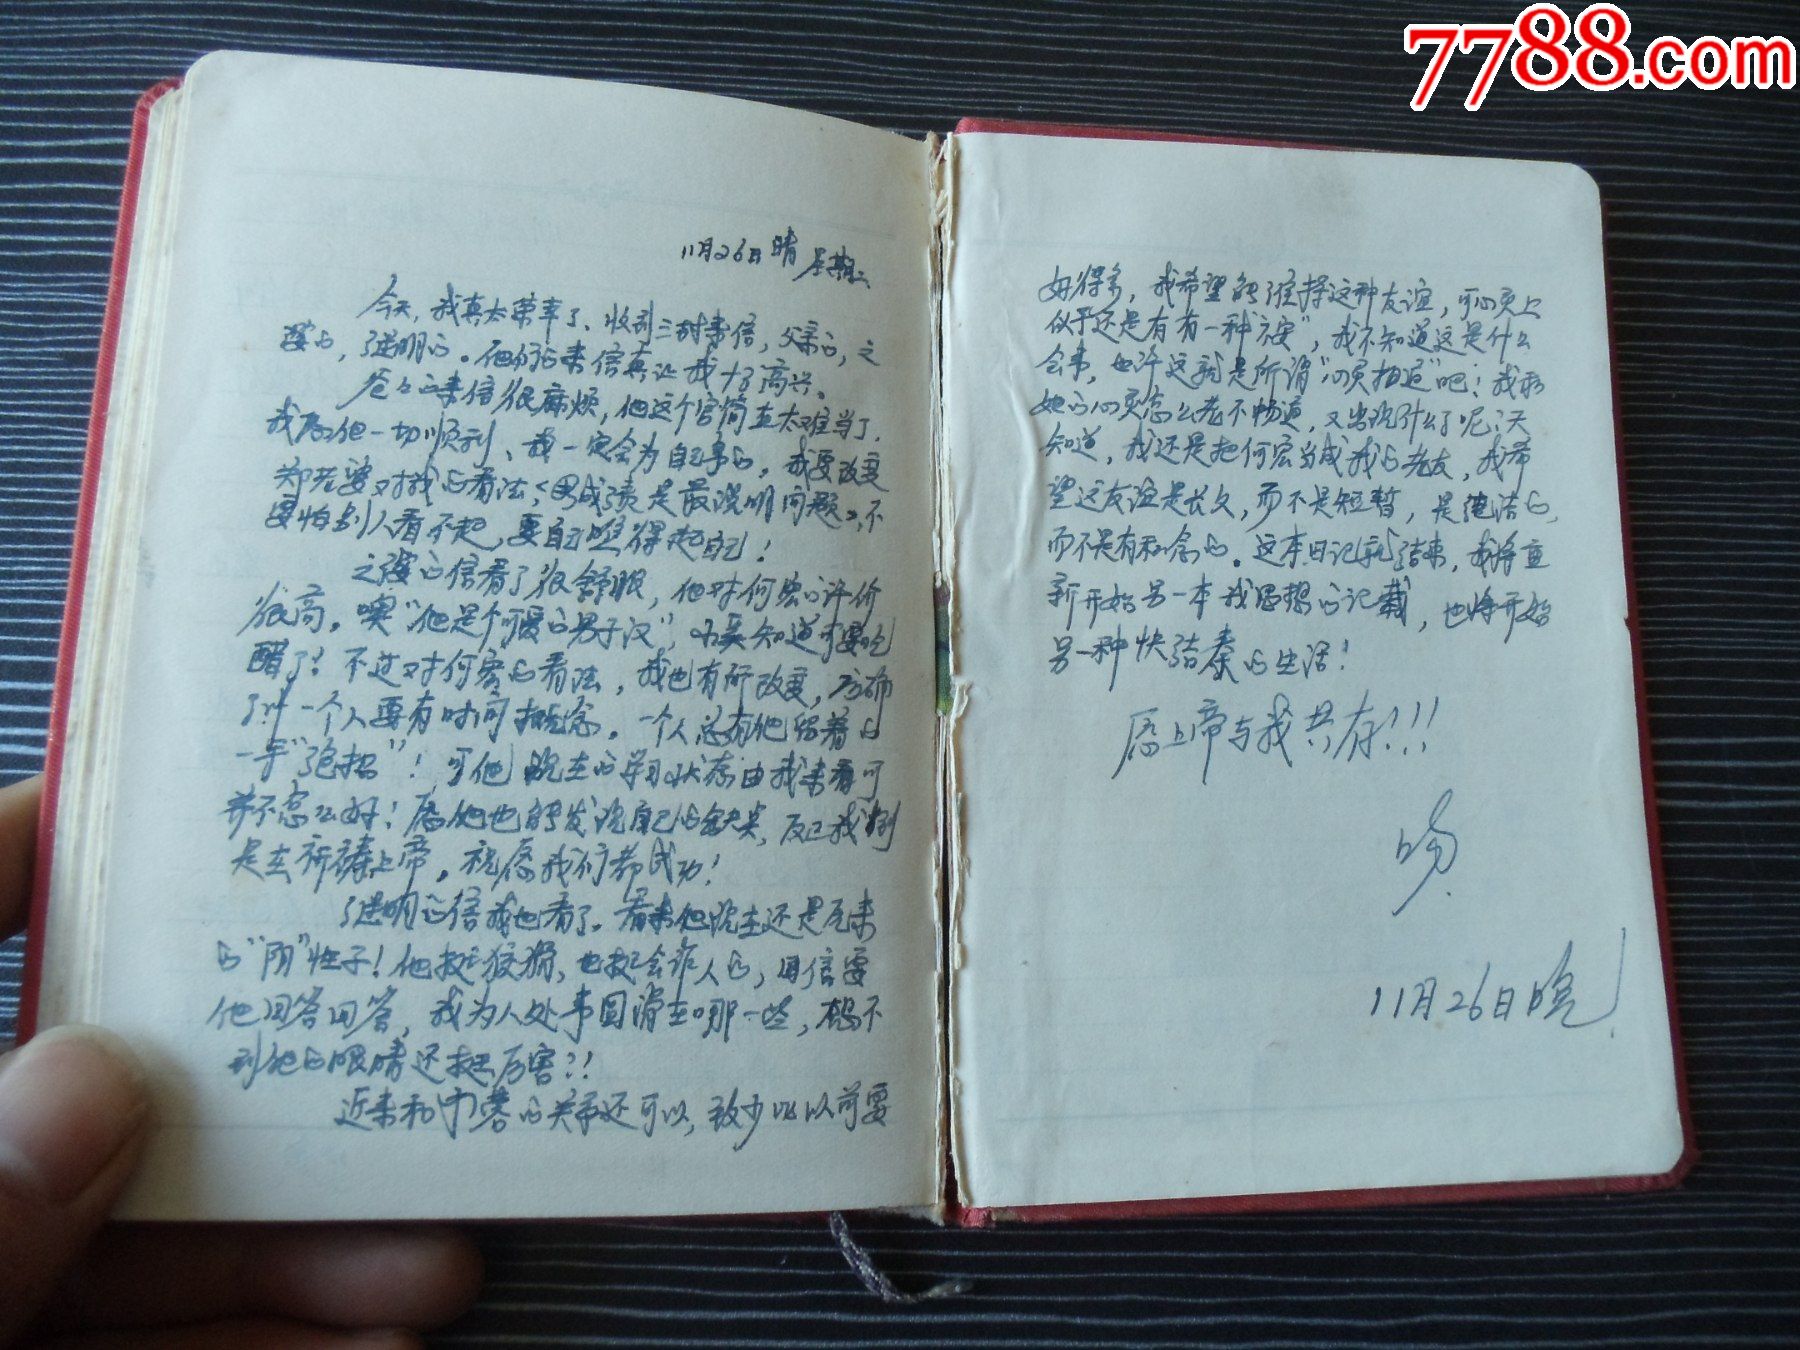 7788.com
11月26日 晴 星期二
今天,我真太荣幸了、收到三封来信,父亲的,之
的。他们的来信真让我十分高兴。
爸爸的来信很麻烦,他这个官简直太难当了,
我愿他一切顺利、我一定会为自己争的,我要改变
郑老婆对我的看法,<男成绩是最说明问题>,不
要怕别人看不起,要自己瞧得起自己!
的信看了很舒服,他对何宏的评价
很高。噢"他是个可爱的男子汉",知道可要吃
醋了!不过对何宏的看法,我也有所改变,
了叶一个人要有时间概念。一个人总有他留着的
一手"绝招"!可他现在的学习状态由我来看可
并不怎么好!愿他也能发现自己的缺点,反正我
是在祈祷上帝。祝愿我们都成功!
的信我也看了。看来他现在还是原来
的"阴"性子!他挺狡猾,也挺会诈人的,回信要
他回答回答,我为人处事圆滑在哪一些,想不
到他的眼睛还挺厉害?!
近来和蓉的关系还可以,致少比以前要
好得多,我希望能维持这种友谊,可心灵上
似乎还是有有一种"",我不知道这是什么
会事,也许这就是所谓"心灵相通"吧!我和
她的心灵怎么老不畅通,又出现什么了呢?天
知道,我还是把何宏当成我的老友,我希
望这友谊是长久,而不是短暂,是纯洁的,
而不是有私念的。这本日记就结束,我将重
新开始另一本我思想的记载,也将开始
另一种快节奏的生活!
愿上帝与我共存!!!
11月26日晚